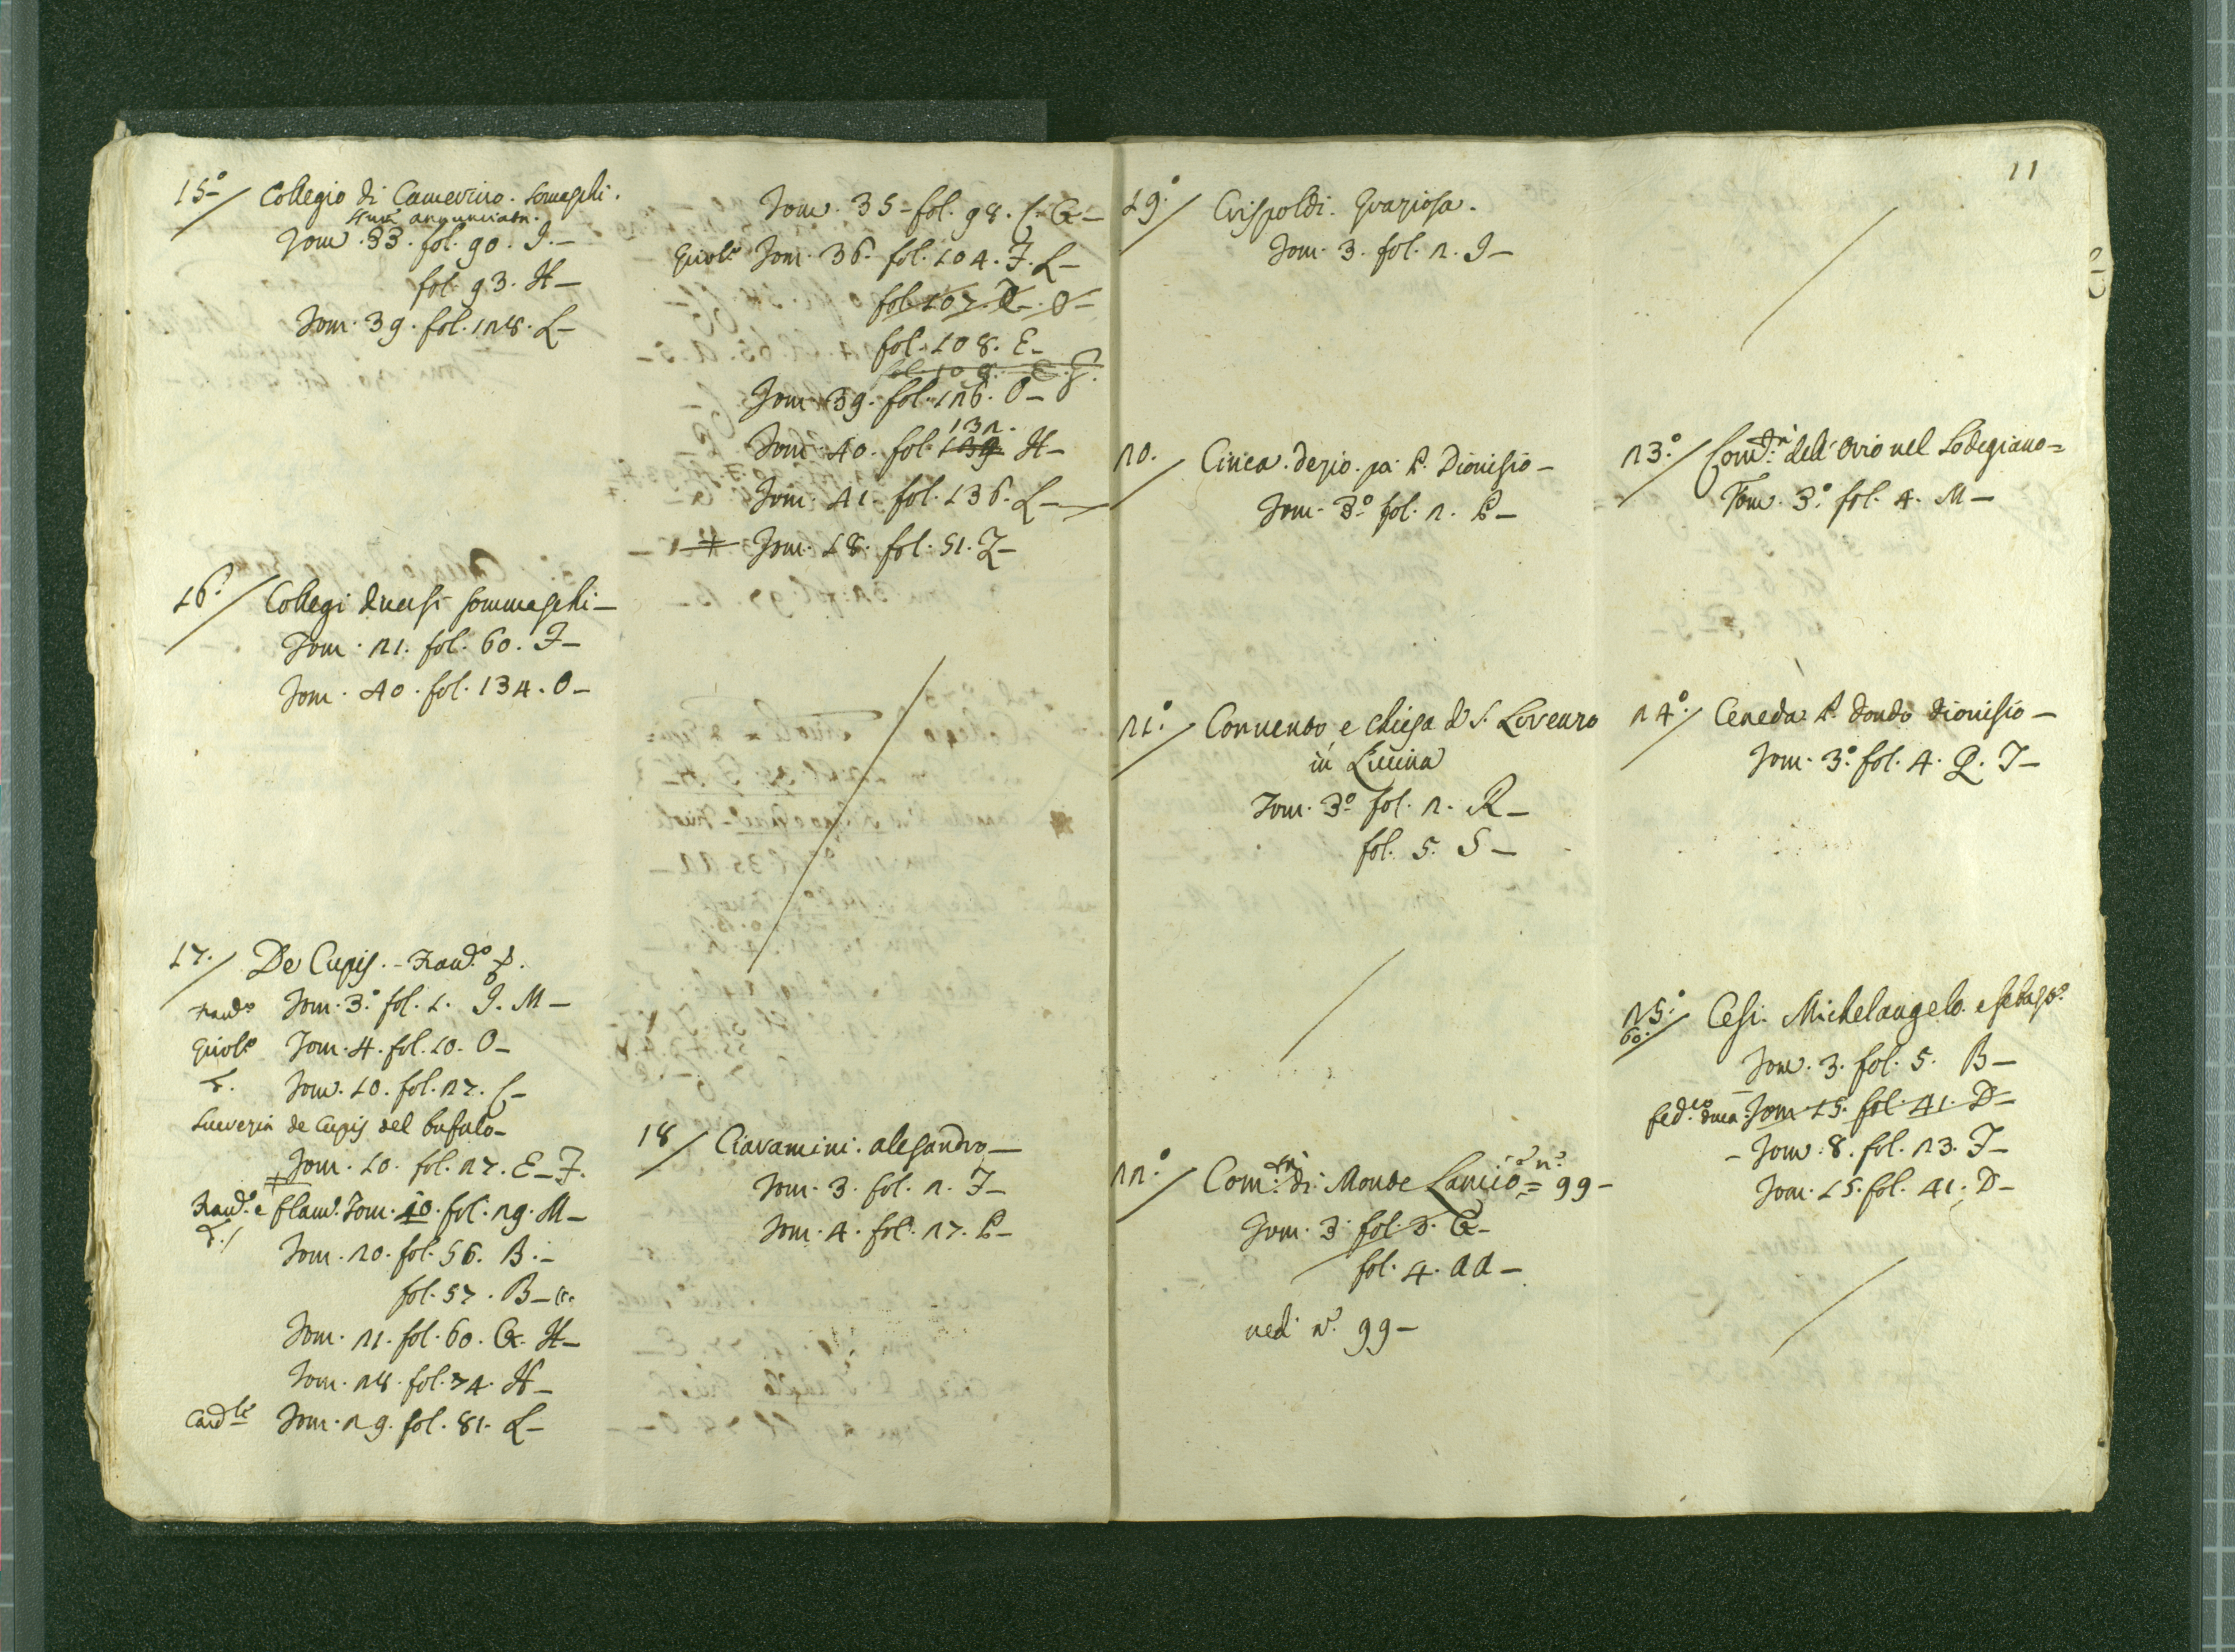 15°/ Collegio di Camerino. Somaschi.
annunciata.
Tom. 33. fol. 90. I.—
fol. 93. H—
Tom. 39. fol. 128. L—
16°/ Collegi diversi sommaschi—
Tom. 21. fol. 60. I—
Tom. 40. fol. 134. O—
17./ De Cupis. - Franc.°
Franc.° Tom. 3.° fol. 1. I. M—
Girol.° Tom. 4. fol. 10. O—
Tom. 10. fol. 27. C—
Lucrezia de Cupis del bufalo—
Tom. 10. fol. 27. E—F.
Franc.° e flam.° Tom. 10. fol. 29. M—
Tom. 20. fol. 56. B.—
fol. 57. B—
Tom. 21. fol. 60. G. H—
Tom. 28. fol. 74. H—
Card.le Tom. 29. fol. 81. L—
Tom. 35- fol. 98. C. G—
Girol.° Tom. 36. fol. 104. F. L—
fol. 107. O—
fol. 108. E—
fol. 108. E. F.
Tom. 39. fol. 126. O—
132.
Tom. 40. fol. 139 H—
Tom. 41. fol. 136. L—
Tom. 18. fol. 51. Z—
18/ Ciaramini. alesandro—
Tom. 3. fol. 2. I—
Tom. 4. fol. 27. P—
11
19°/ Crispoldi. Graziosa.
Tom. 3. fol. 2. I—
20./ Cinea. dezio. pa. P. Dionisio—
Tom. 3.° fol. 2. P—
21°./ Convento e chiesa di S. Lorenzo
in Lucina
Tom. 3.° fol. 2. R—
fol. 5. S—
22°./ Com.da di Monte Lancio = 99—
Tom. 3. fol. 3. G—
fol. 4. AA—
vedi n.° 99—
23°./ Com.da dell'Orio nel Lodegiano=
Tom. 3.° fol. 4. M—
24°./ Ceneda. P. dondo dionisio—
Tom. 3.° fol. 4. Q. I—
25°./ Cesi. Michelangelo. e Sebast.°
60.
Tom. 3. fol. 5. B—
fed.co duca. Tom 15. fol. 41. D—
- Tom. 8. fol. 23. I—
Tom. 15. fol. 41. D—